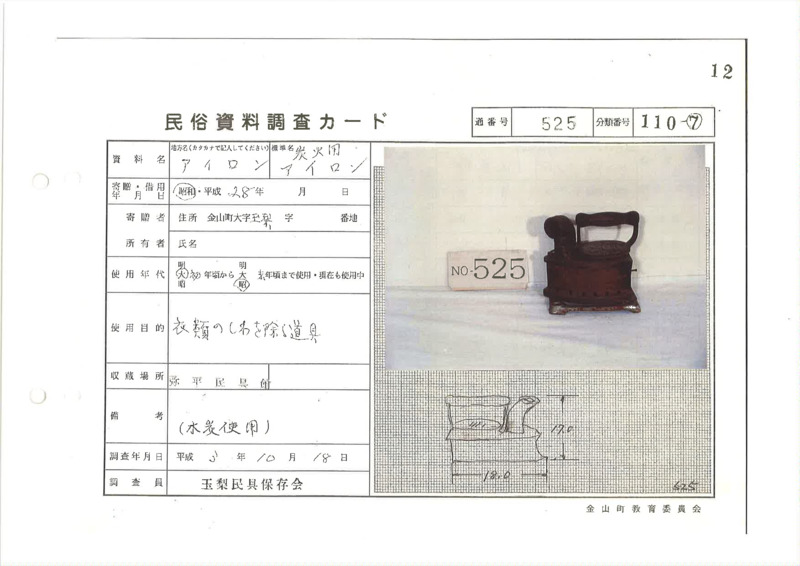 12
民俗資料調査カード
通番号 525 分類番号 110-⑦
資料名 地方名(カタカナで記入してください) アイロン 標準名 炭火用アイロン
寄贈・借用年月日 昭和・平成 28年 月 日
寄贈者 住所 金山町大字玉梨 字 番地
所有者 氏名
使用年代 明 大 昭 初年頃から 明 大 昭 末年頃まで使用・現在も使用中
使用目的 衣類のしわを除る道具
収蔵場所 弥平民具館
備考 (木炭使用)
調査年月日 平成 5年 10月 18日
調査員 玉梨民具保存会
NO-525
17.0
18.0
525
金山町教育委員会